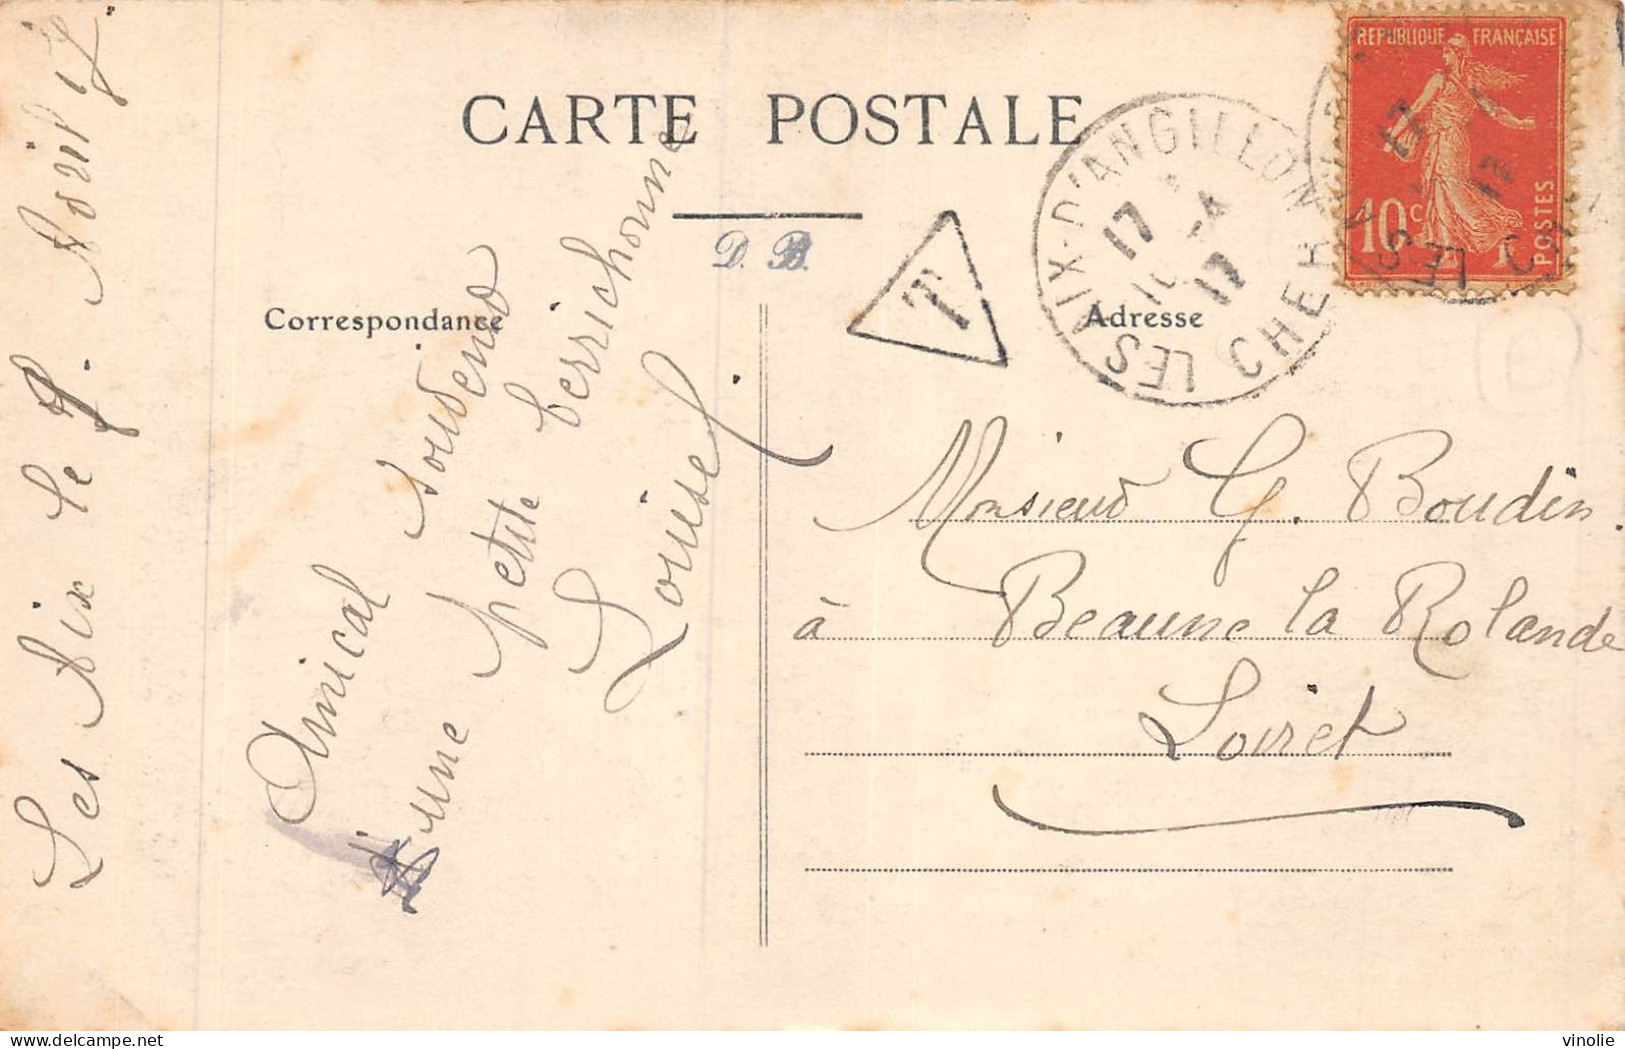 CARTE POSTALE
D. B.
Correspondance
Adresse
T
LES AIX-D'ANGILLON
CHER
17
17
REPUBLIQUE FRANÇAISE
10c
POSTES
Les Aix le 9. Avril 17
Amical souvenir
d'une petite berrichonne
Louise
Monsieur G. Boudin.
à Beaune la Rolande
Loiret
vinolie